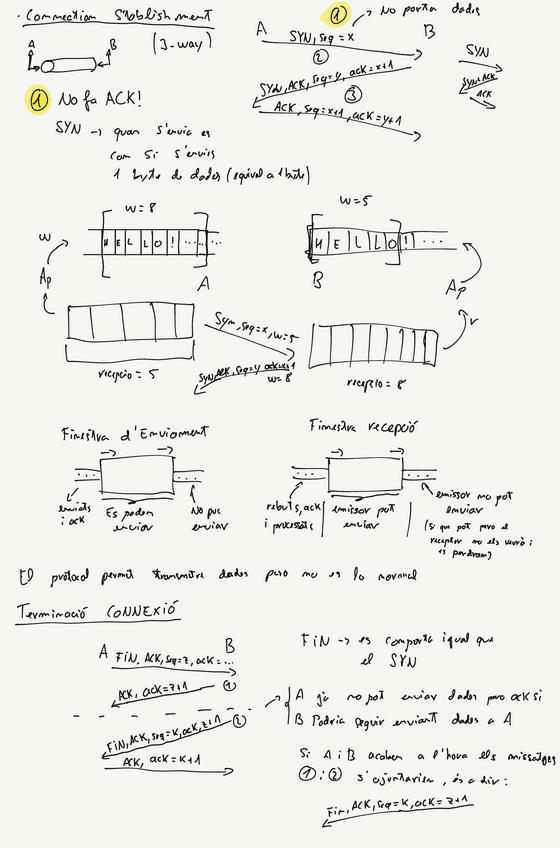 · Connection Stablishment
(3-way)
A B
① No fa ACK!
SYN → quan s'envia es
com si s'envis
1 byte de dades (equival a 1 byte)
① → No porta dades
A B
SYN, seq = x
②
SYN, ACK, seq = y, ack = x+1
③
ACK, seq = x+1, ack = y+1
SYN
SYN ACK
ACK
w = 8
H E L L O ! ...
w
Ap
A
recepcio = 5
Syn, seq = x, w = 5
SYN, ACK, seq = y ack = x+1
w = 8
w = 5
H E L L O ! ...
B
Ap
r
recepcio = 8
Finestra d'Enviament
enviats
i ack
Es poden
enviar
No puc
enviar
Finestra recepció
rebuts, ack
i processats
emissor pot
enviar
emissor no pot
enviar
(si que pot pero el
receptor no els veurà i
es perdran)
El protocol permet transmetre dades pero no es lo normal
Terminació CONNEXIÓ
A B
FIN, ACK, seq = z, ack = ...
ACK, ack = z+1 ①
②
FIN, ACK, seq = k, ack, z+1
ACK, ack = k+1
FIN → es comporta igual que
el SYN
A ja no pot enviar dades pero ack si
B Podria seguir enviant dades a A
Si A i B acaben a l'hora els missatges
① i ② s'ajuntarien, és a dir:
Fin, ACK, seq = k, ack = z+1